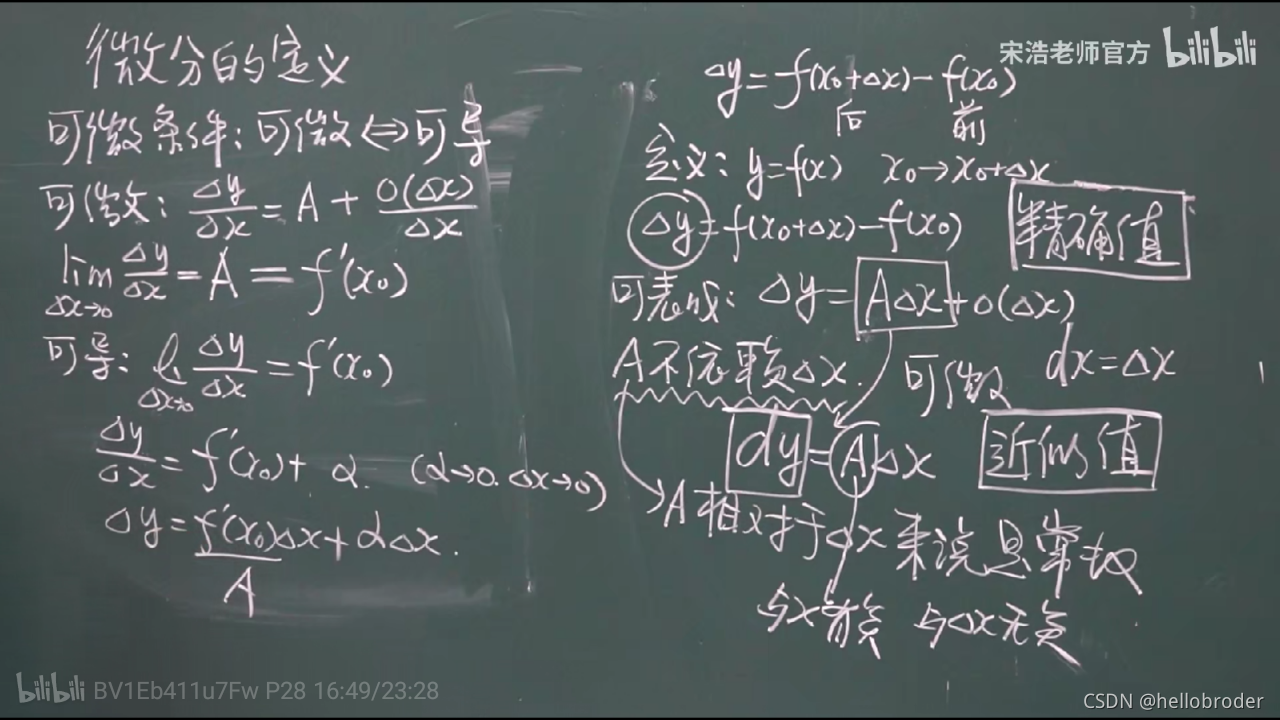 微分的定义
可微条件:可微⇔可导
可微: Δy/Δx = A + o(Δx)/Δx
lim Δx→0 Δy/Δx = A = f'(x₀)
可导: li Δx→0 Δy/Δx = f'(x₀)
Δy/Δx = f'(x₀) + α. (α→0. Δx→0)
Δy = f'(x₀)Δx + αΔx.
A
宋浩老师官方 bilibili
Δy = f(x₀+Δx) - f(x₀)
后 前
定义: y=f(x) x₀→x₀+Δx
Δy = f(x₀+Δx) - f(x₀) 精确值
可表成: Δy = AΔx + o(Δx)
A不依赖Δx. 可微 dx=Δx
dy = AΔx 近似值
A相对于Δx来说是常数
与x有关 与Δx无关
bilibili BV1Eb411u7Fw P28 16:49/23:28
CSDN @hellobroder